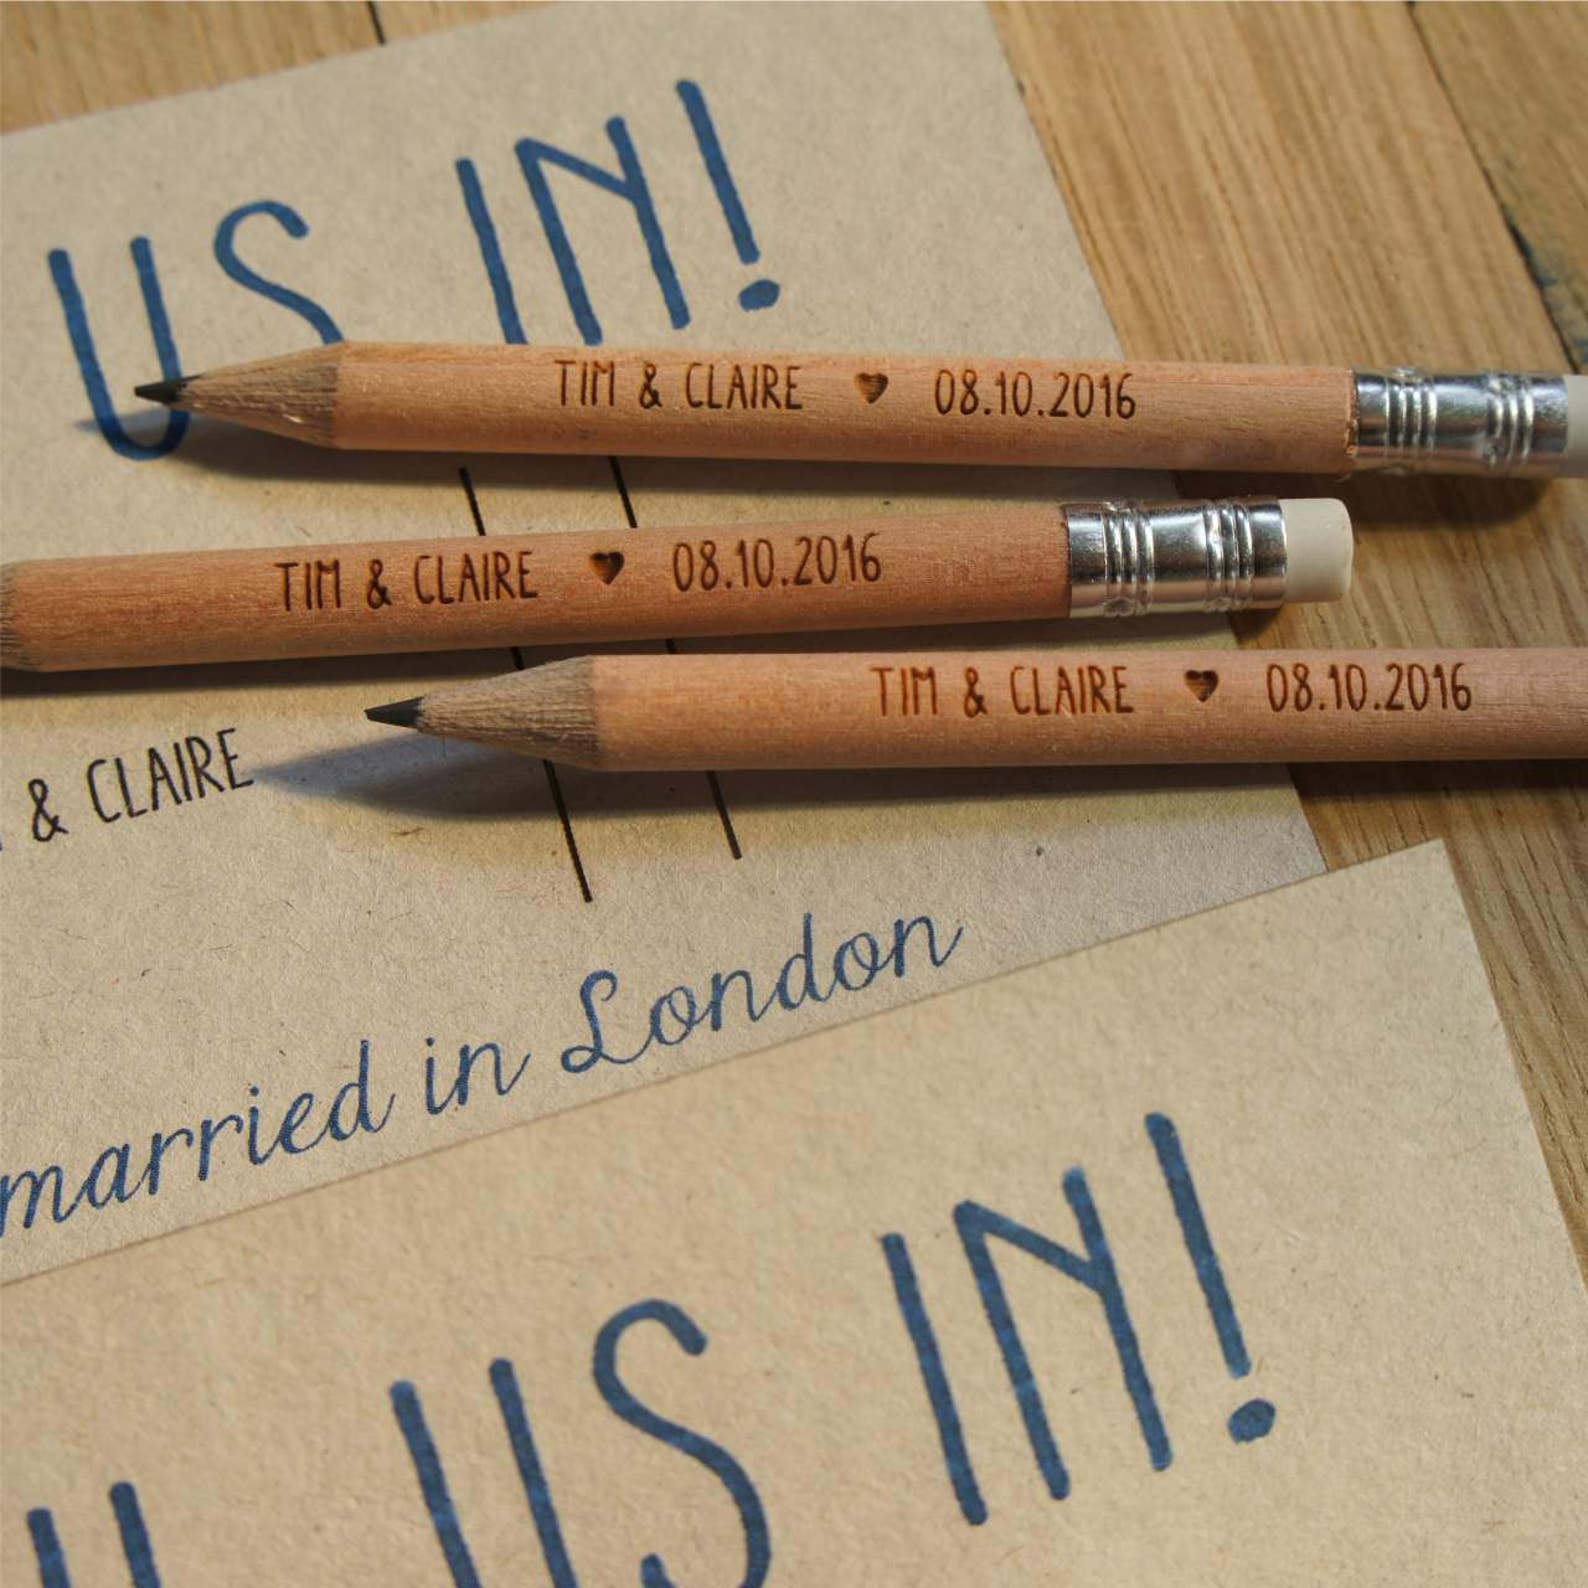 US IN!
TIM & CLAIRE ♥ 08.10.2016
TIM & CLAIRE ♥ 08.10.2016
TIM & CLAIRE ♥ 08.10.2016
& CLAIRE
married in London
US IN!